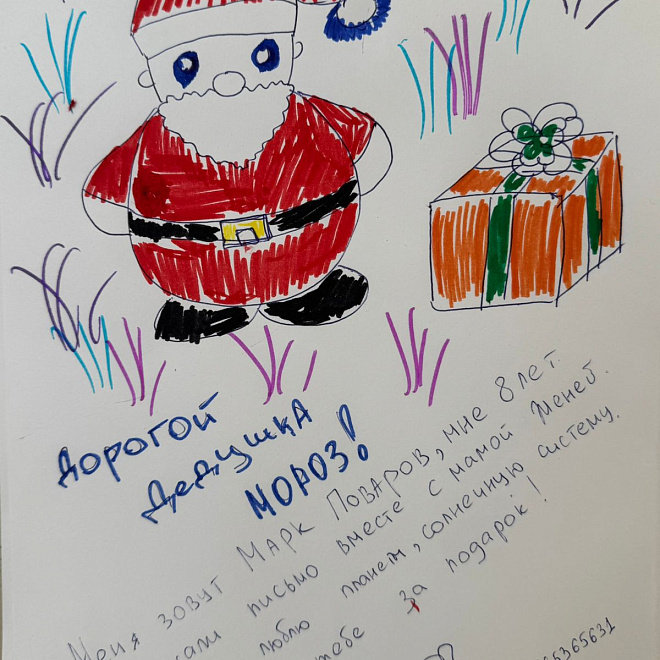 ДОРОГОЙ
ДЕДУШКА
МОРОЗ!
Меня зовут Марк Поваров, мне 8 лет.
письмо вместе с мамой Женей.
люблю планеты, солнечную систему.
тебе за подарок!
5365631